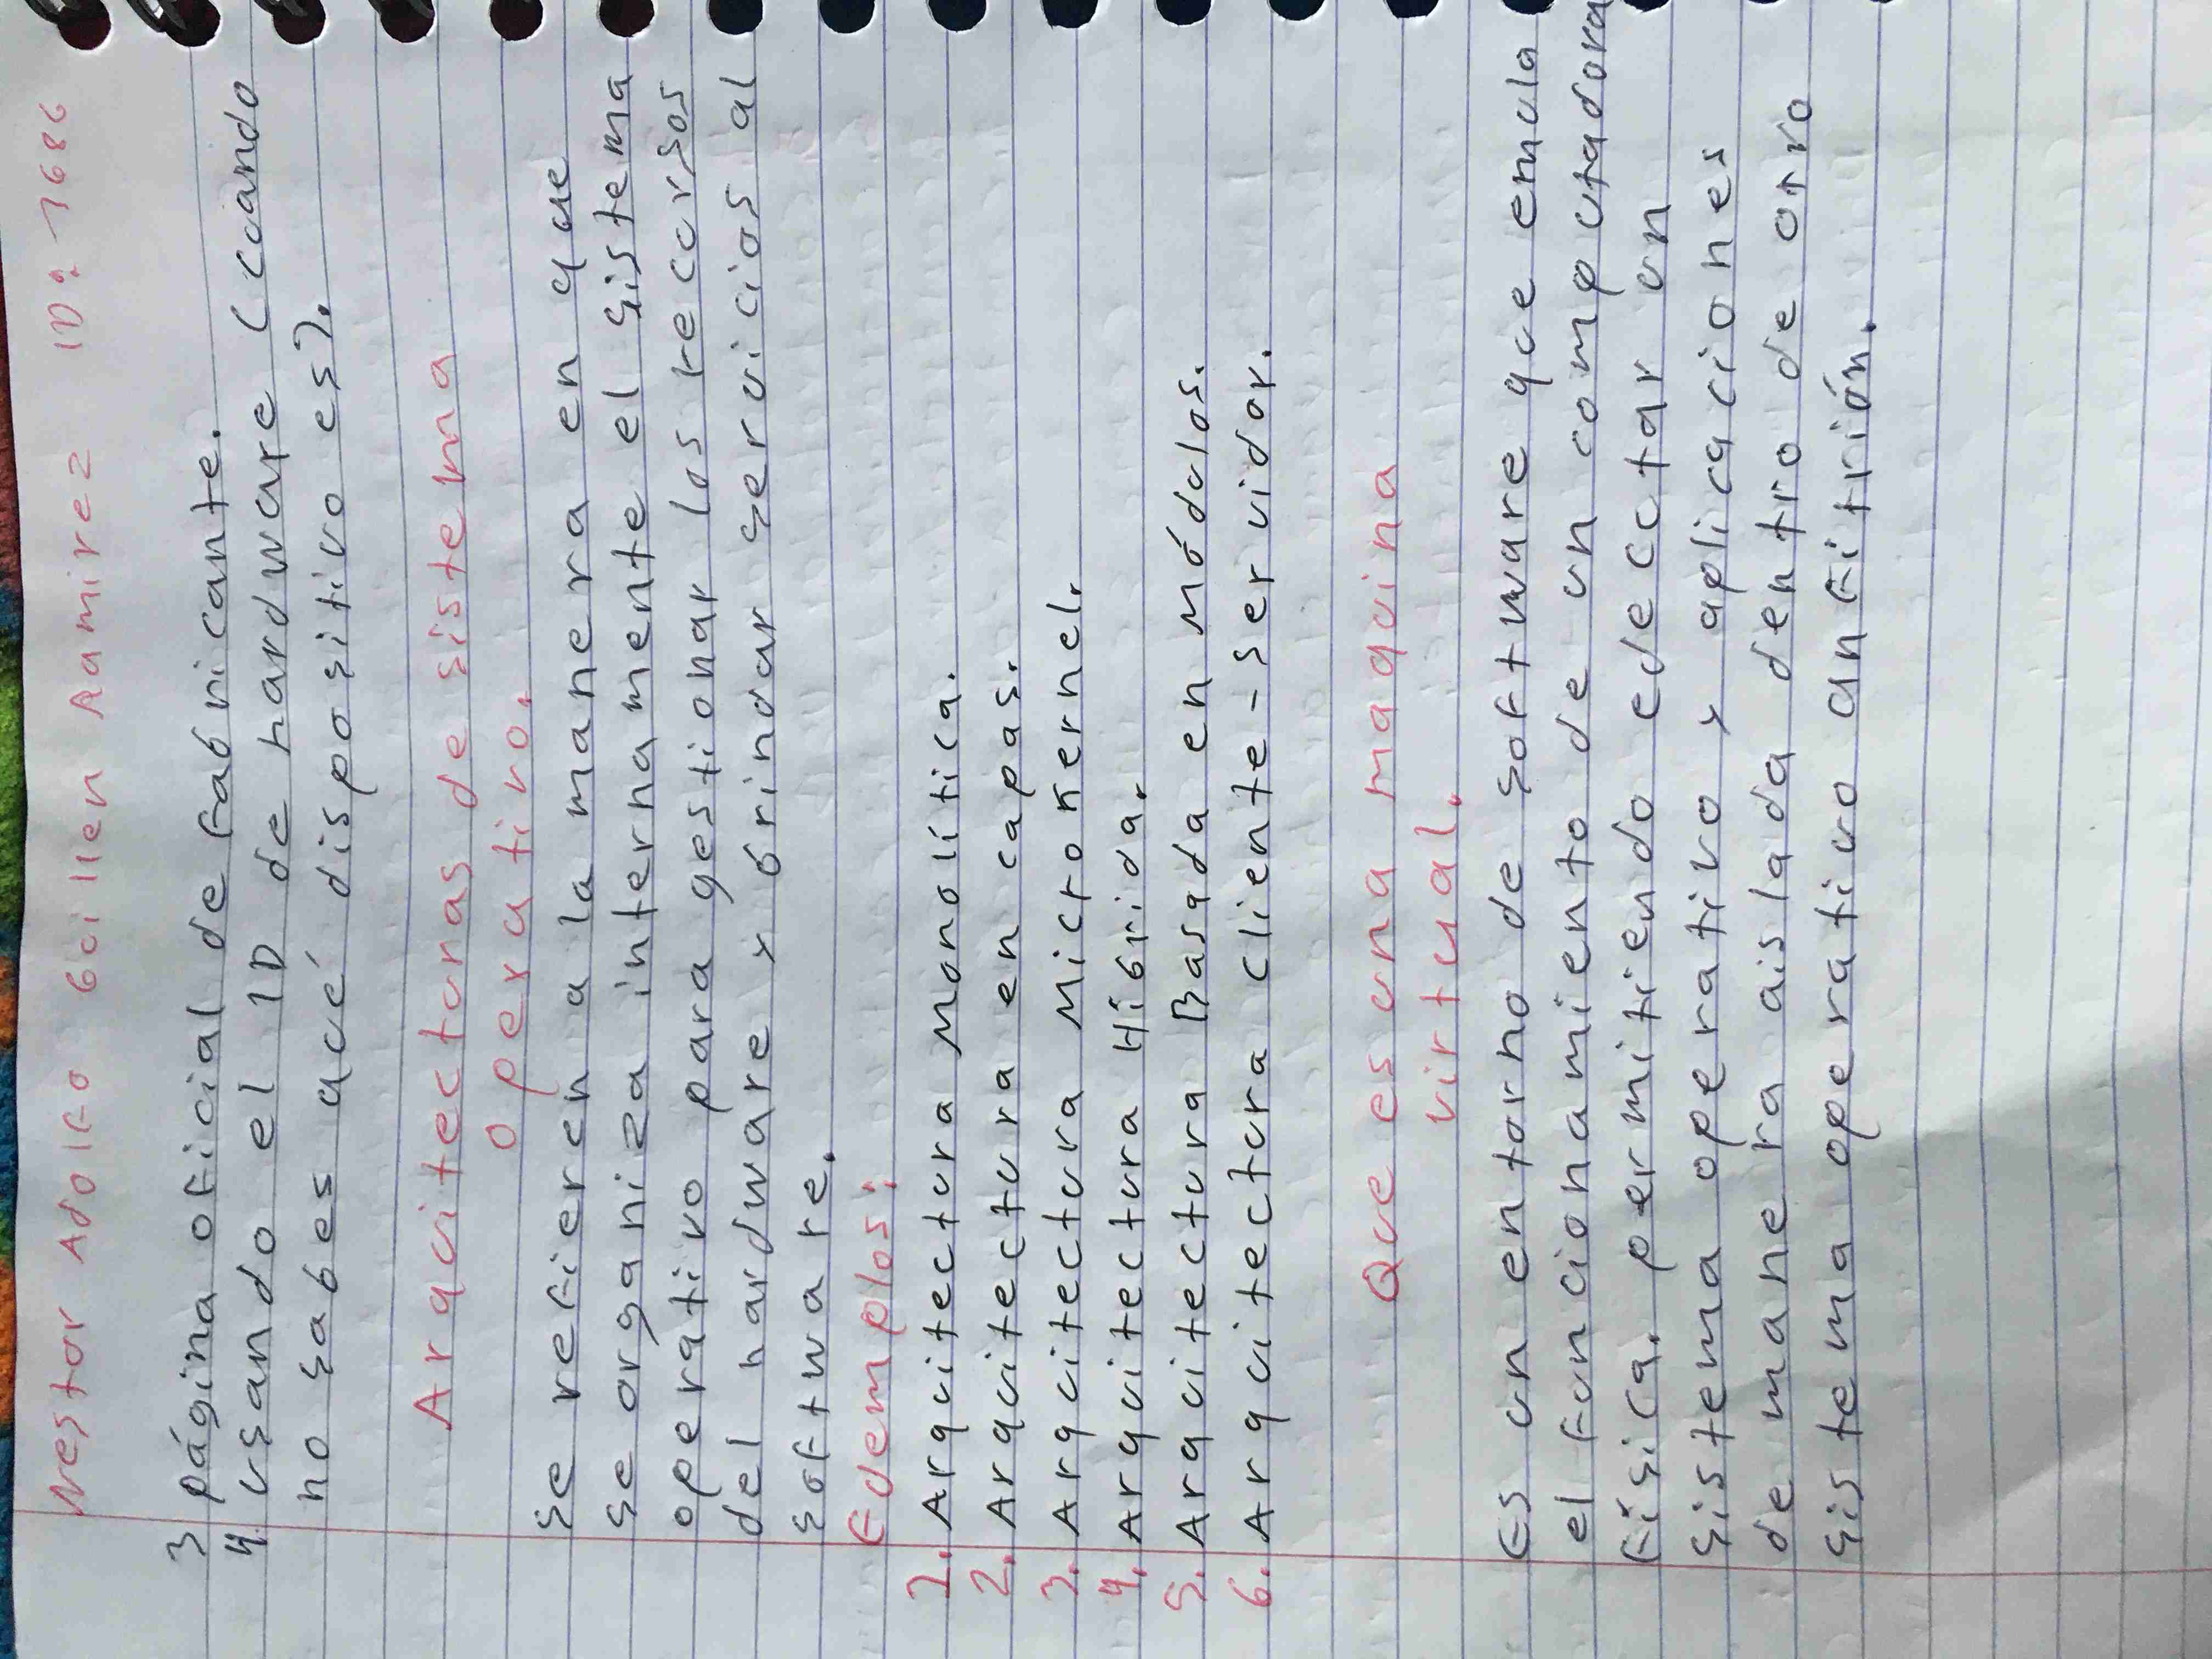 Nestor Adolfo Guillen Ramirez ID: 1686
3 página oficial de fabricante.
4. usando el ID de hardware (cuando
no sabes qué dispositivo es).
Arquitecturas de sistema
operativo.
Se refieren a la manera en que
se organiza internamente el sistema
operativo para gestionar los recursos
del hardware y brindar servicios al
software.
Edemplos:
1. Arquitectura Monolítica.
2. Arquitectura en capas.
3. Arquitectura Microkernel.
4. Arquitectura Híbrida.
5. Arquitectura Basada en Módulos.
6. Arquitectura cliente-servidor.
Que es una maquina
virtual.
Es un entorno de software que emula
el funcionamiento de un computadora
física. permitiendo edecutar un
sistema operativo y aplicaciones
de manera aislada dentro de otro
sistema operativo anfitrión.